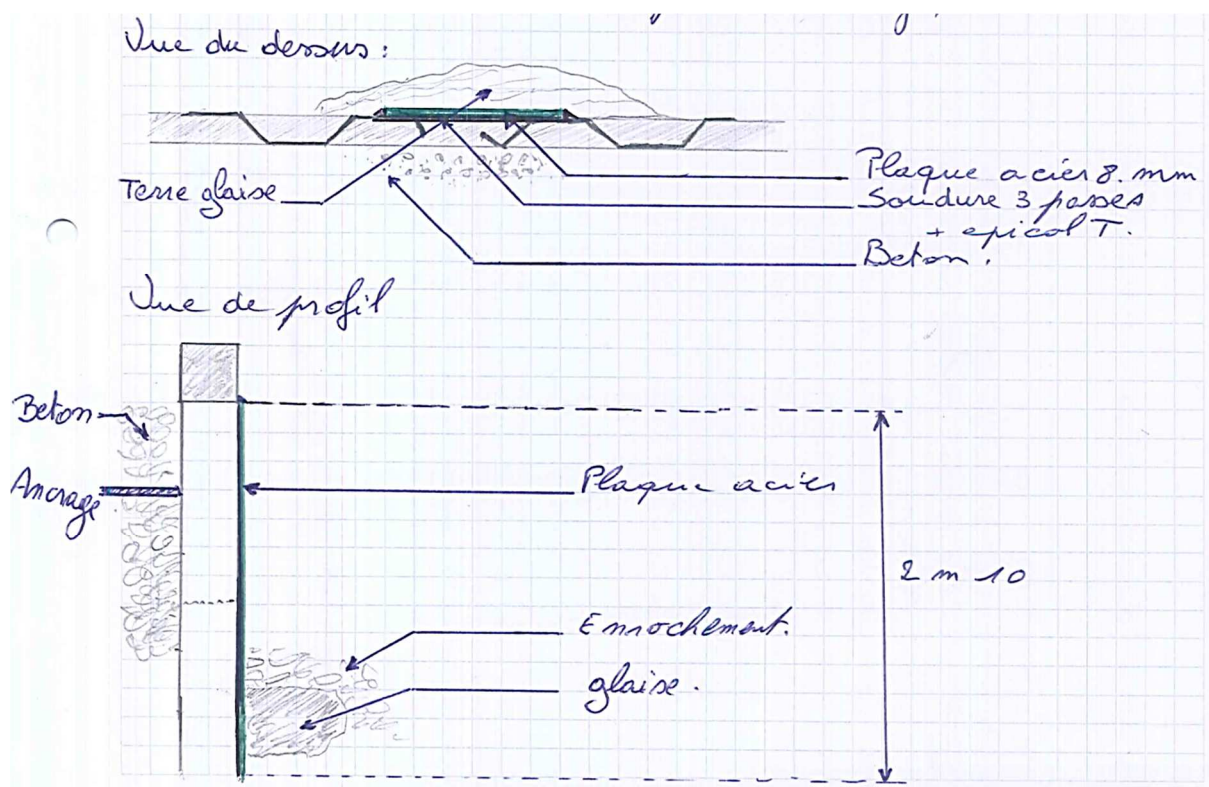 Vue du dessus :
Terre glaise
Plaque acier 8. mm
Soudure 3 passes
+ epicol T.
Beton.
Vue de profil
Beton
Ancrage
Plaque acier
2 m 10
Enrochement.
glaise.